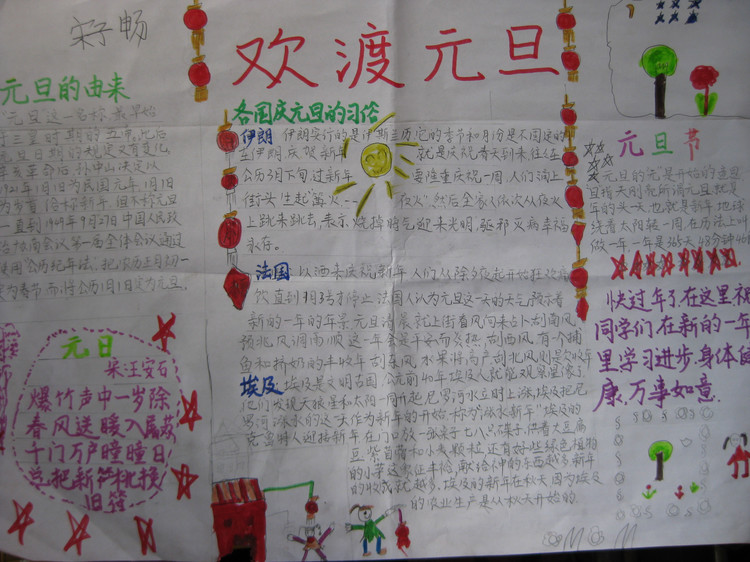 宋子畅
欢渡元旦
元旦的由来
"元旦"这一名称,最早始
于三皇时期的五帝,此后
元旦日期的规定又有变化,
辛亥革命后,孙中山决定以
1912年1月1日为民国元年,1月1日
为岁首
一直到1949年9月27日中国人民政
治协商会议第一届全体会议通过
使用"公历纪年法",把农历正月初一
定为春节而将公历1月1日定为元旦。
元日
宋:王安石
爆竹声中一岁除
春风送暖入屠苏
千门万户曈曈日
总把新符机换
旧符
各国庆元旦的习俗
伊朗 伊朗实行的是伊斯兰历,它的季节和月份是不固定的
在伊朗庆贺新年 就是庆祝春天到来,往往在
公历3月下旬,过新年 要隆重庆祝一周,人们涌上
街头"生起"篝火 "夜火",然后全家人依次从"夜火"
上跳来跳去,表示烧掉"晦气",迎来光明,驱邪灭病,幸福
永存。
法国:以酒来庆祝新年,人们从除夕夜起开始狂欢痛
饮,直到1月3日才停止,法国人认为元旦这一天的天气预示着
新的一年的年景,元旦清晨就上街看风向来占卜:刮南风,
预兆风调雨顺,这一年会是平安而炎热;刮西风,有个捕
鱼和挤奶的丰收年;刮东风,水果将高产;刮北风则是欠收年
埃及:埃及是文明古国,公元前40年埃及人就能观察星象了,
他们发现天狼星和太阳一同升起,尼罗河水立时上涨,埃及把尼
罗河涨水的这一天作为新年的开始,称为"涨水新年"埃及的
克鲁特人迎接新年,在门口放一张桌子,七八只碟子,供着大豆扁
豆紫苜蓿和小麦颗粒,还有好些绿色植物
的小芽,这象征丰裕,献给神中的东西越多,新年
的收成就越多,埃及的新年在秋天,因为埃及
的农业生产是从秋天开始的。
元旦节
元旦的元是开始的意思
旦指天明,所谓元旦就是
年的头一天,也就是新年,地球
绕着太阳转一周,在历法上叫
做一年,一年是365天5小时48分46
快过年了,在这里祝
同学们在新的一年
里学习进步,身体健
康,万事如意.